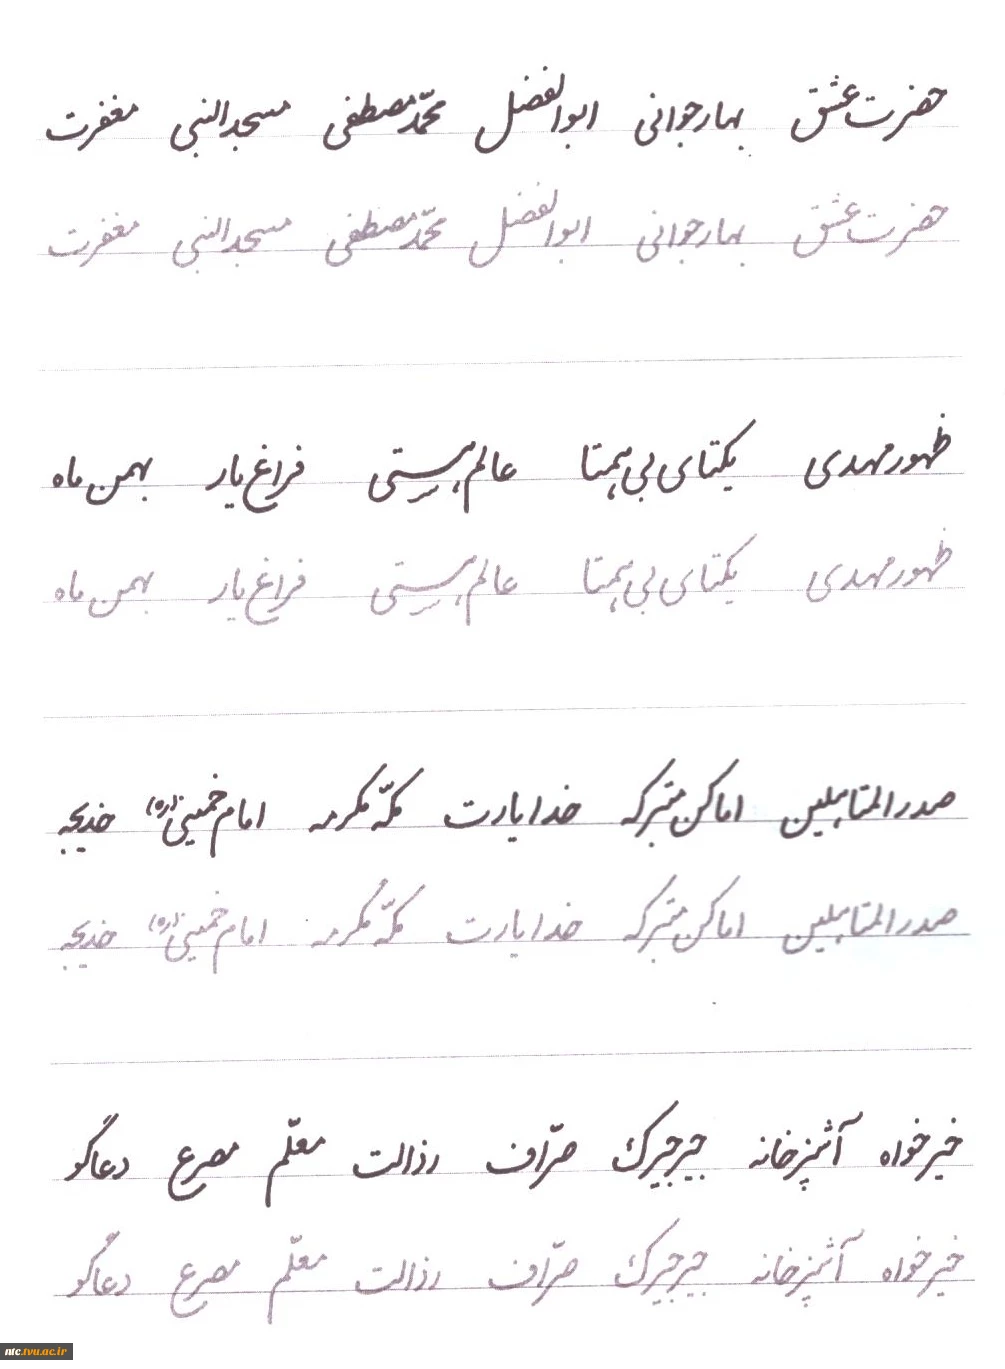 حضرت عشق بهار جوانی ابوالفضل محمّد مصطفی مسجدالنبی مغفرت
حضرت عشق بهار جوانی ابوالفضل محمّد مصطفی مسجدالنبی مغفرت
ظهور مهدی یکتای بی همتا عالم هستی فراغ یار بهمن ماه
ظهور مهدی یکتای بی همتا عالم هستی فراغ یار بهمن ماه
صدرالمتالهین اماکن متبرکه خدایارت مکّه مکرمه امام خمینی(ره) خدیجه
صدرالمتالهین اماکن متبرکه خدایارت مکّه مکرمه امام خمینی(ره) خدیجه
خیرخواه آشپزخانه جیرجیرک صرّاف رذالت معلّم مصرع دعاگو
خیرخواه آشپزخانه جیرجیرک صرّاف رذالت معلّم مصرع دعاگو
ntc.tvu.ac.ir